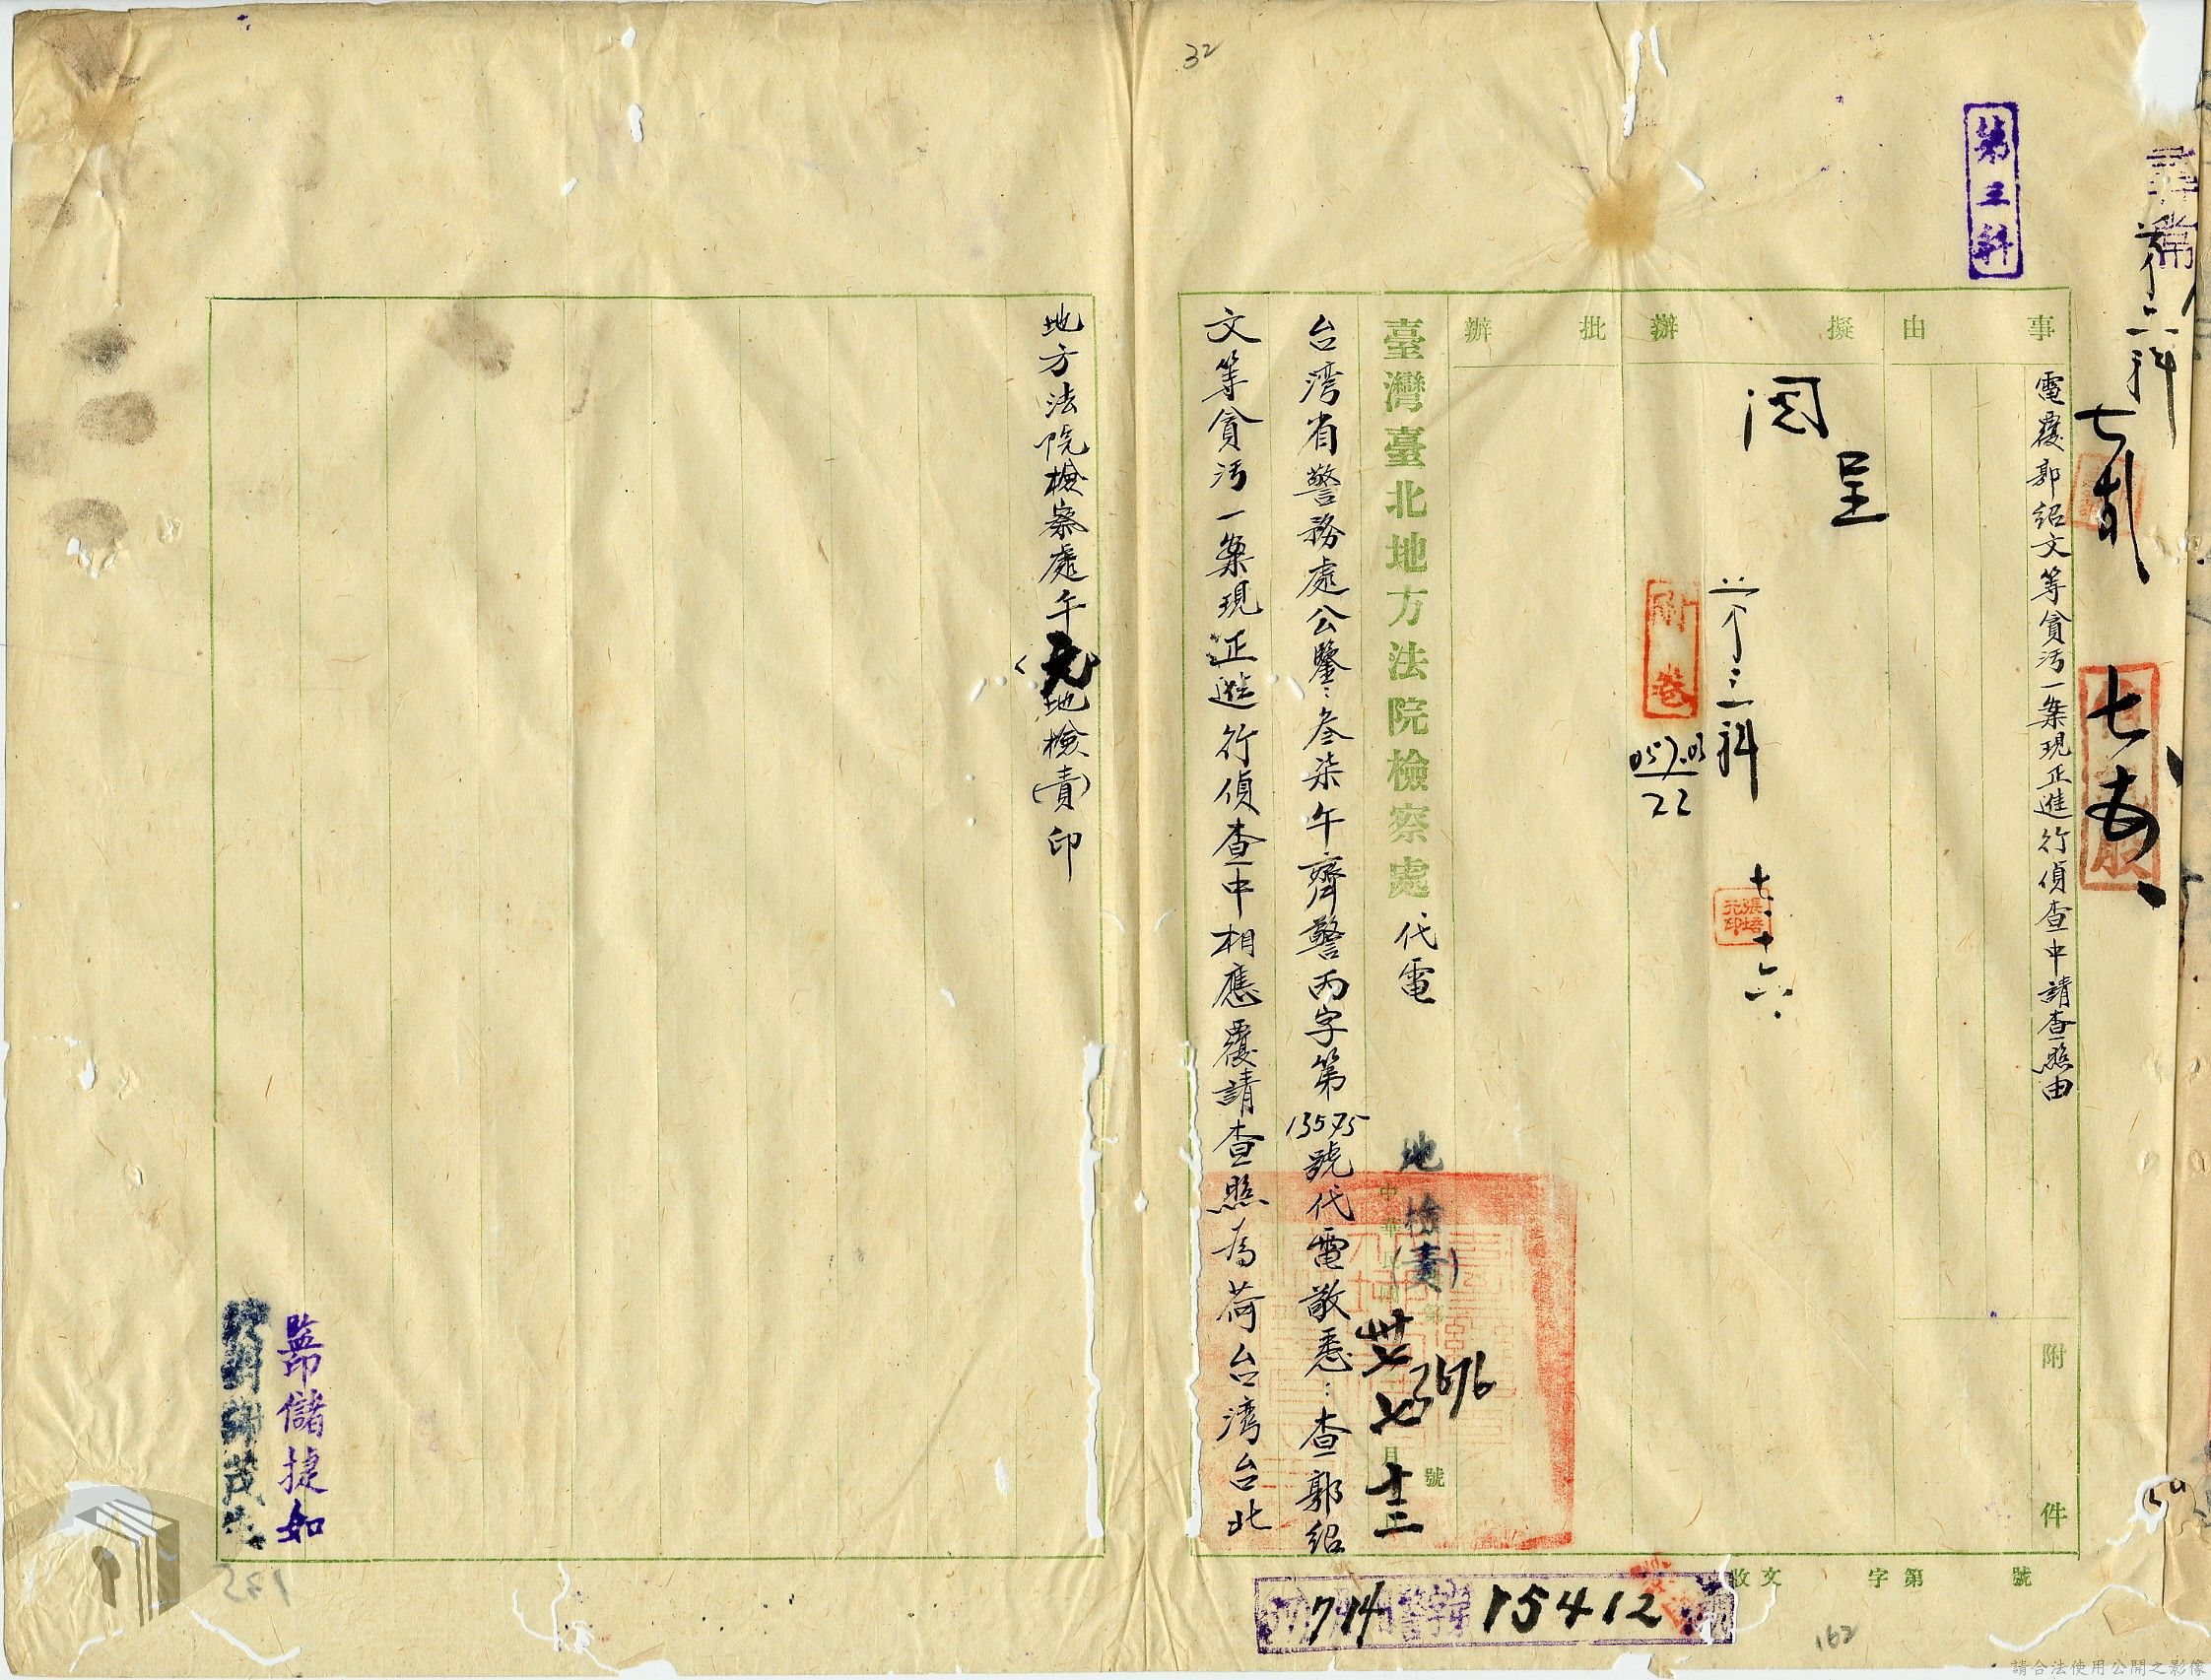 32
第三科
第二科
七五
事由
電覆郭紹文等貪污一案現正進行偵查中請查照由
附件
擬辦
呈
閱
第三科
七、十六、
張培元印
附卷
057.03
22
批辦
臺灣臺北地方法院檢察處代電
地檢(責)
第 7676 號
中華民國卅七 七月十三
台湾省警務處公鑒：叁柒午齊警丙字第13575號代電敬悉：查郭紹
文等貪污一案現正進行偵查中相應覆請查照為荷台湾台北
地方法院檢察處午元地檢(責)印
監印儲捷如
收文 字第 號
714 15412
162
請合法使用公開之影像